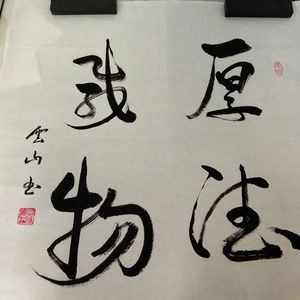 厚德
载物
云山书